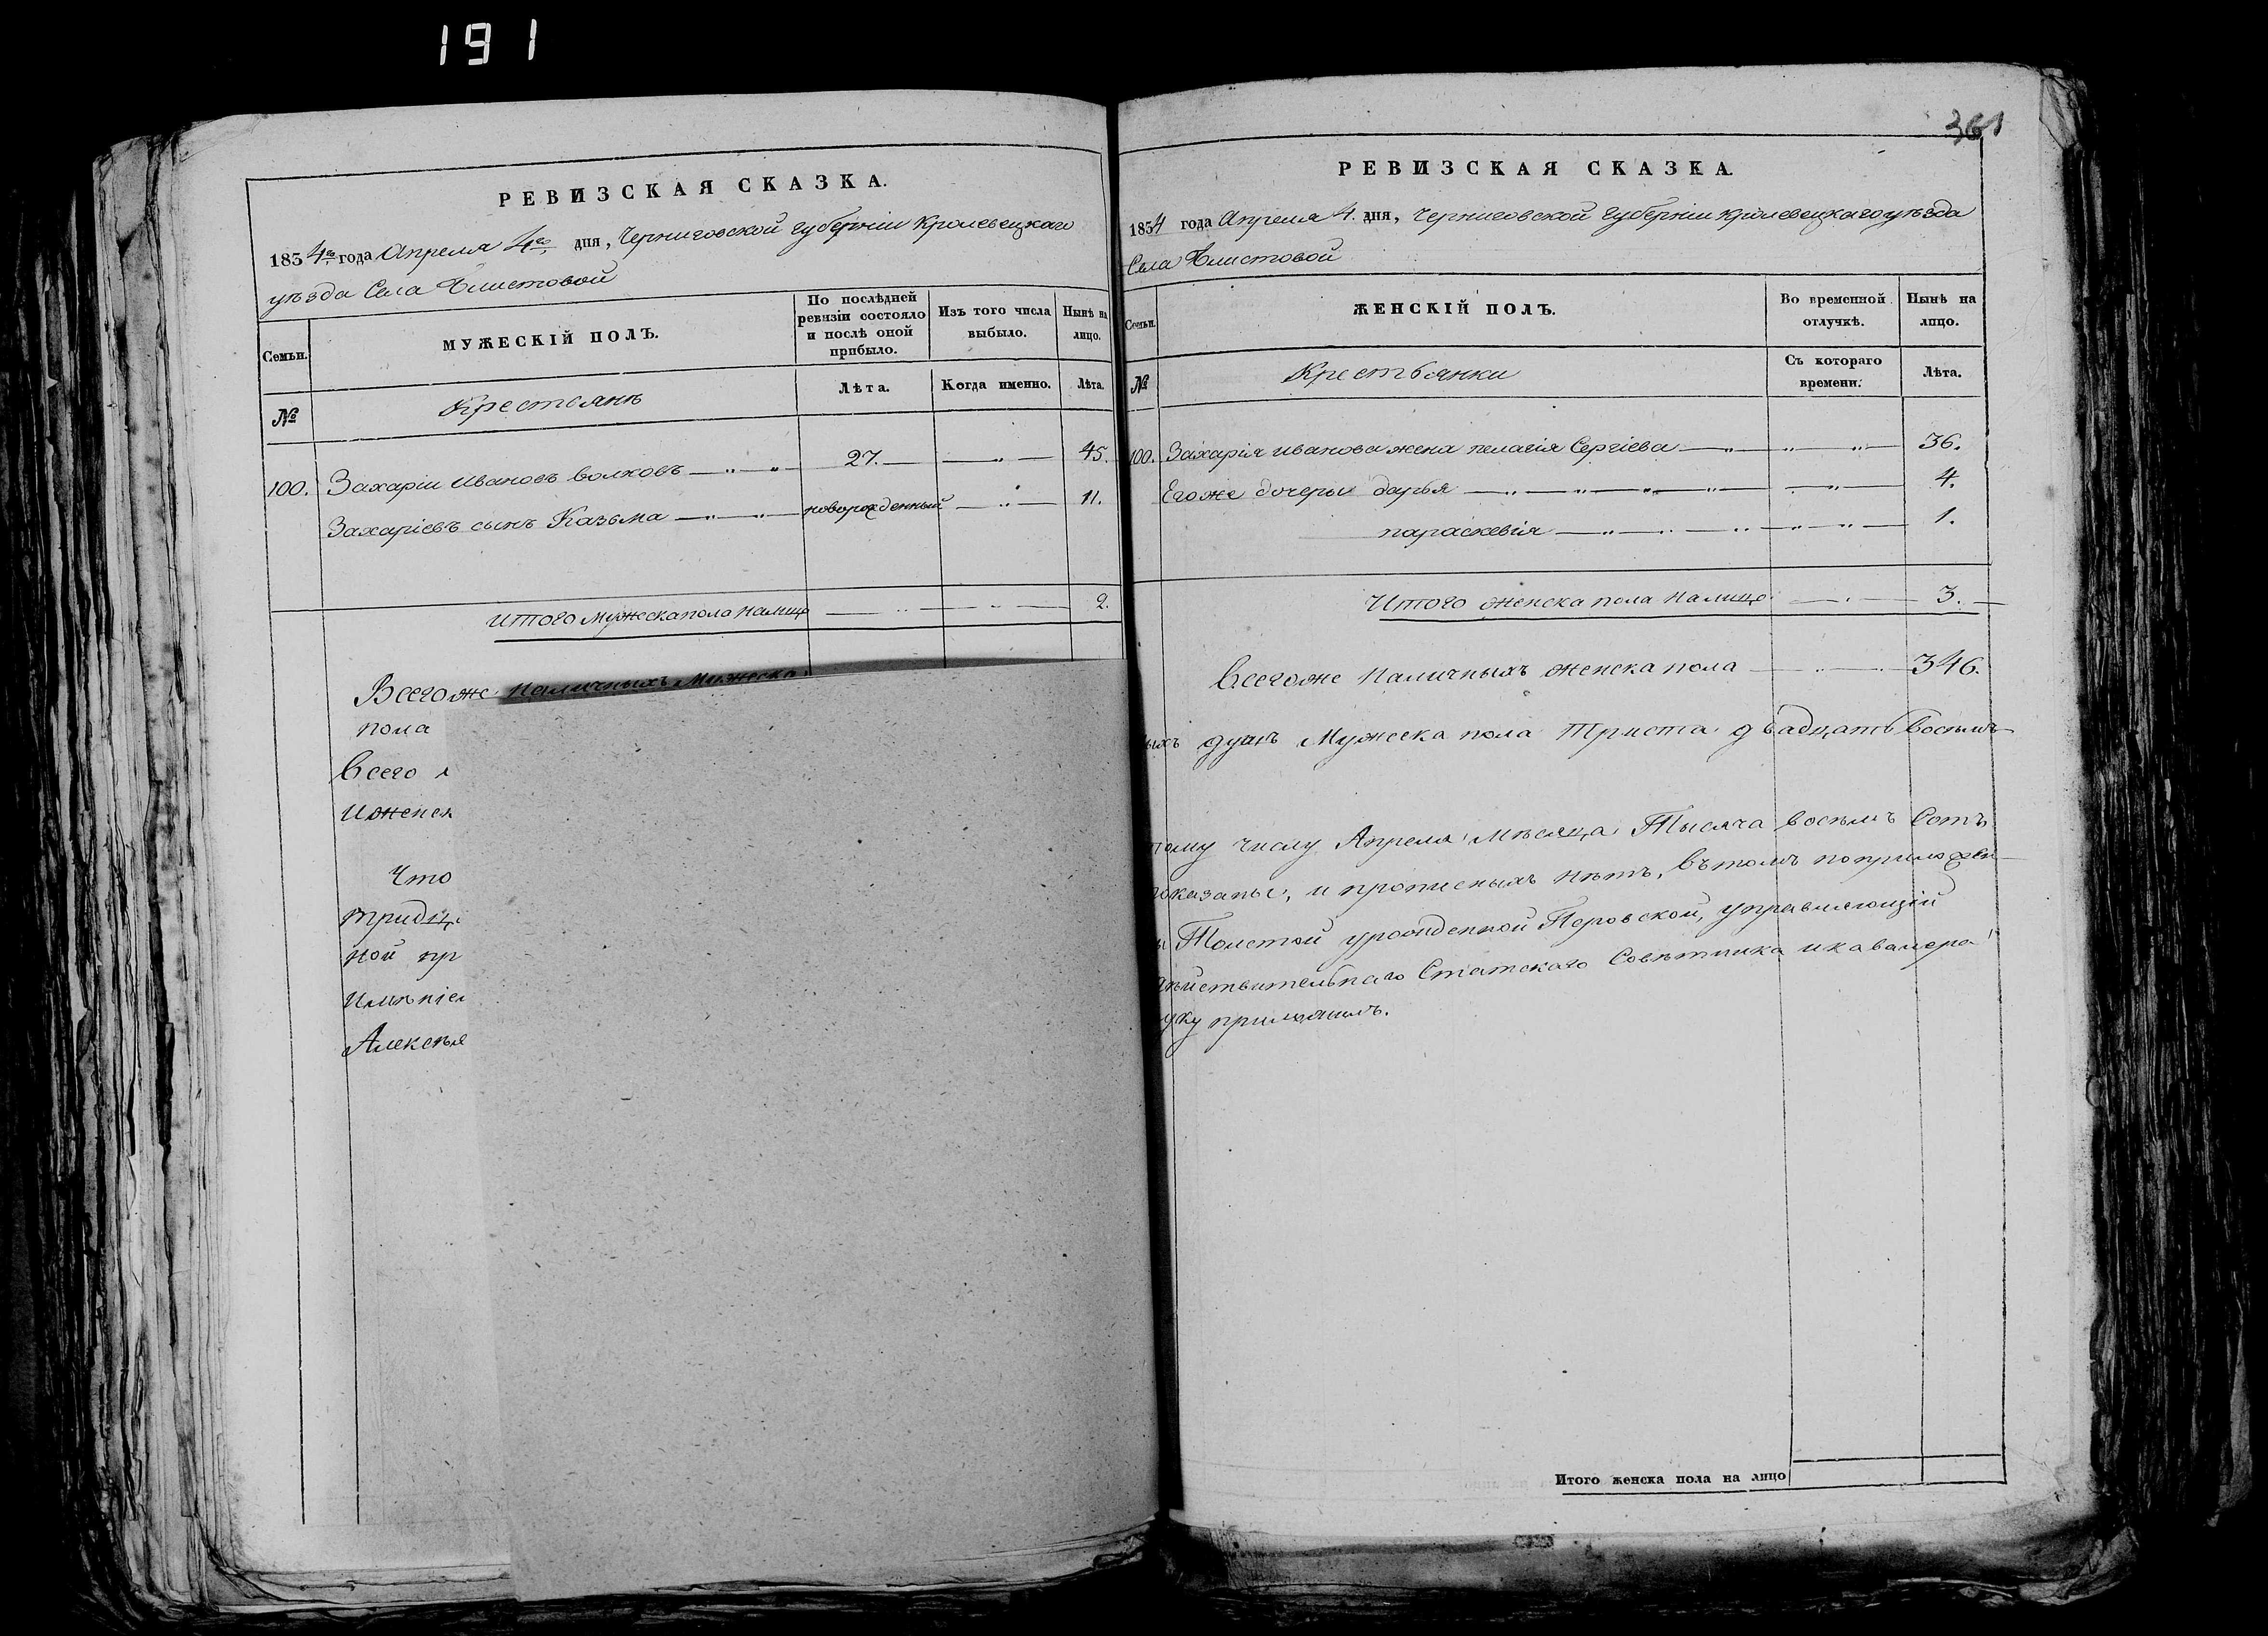 191
РЕВИЗСКАЯ СКАЗКА.
1854го года Апреля 4го дня, Черниговской губерніи Кролевецкаго
уѣзда Села
По послѣдней ревизіи состояло и послѣ оной прибыло.
Изъ того числа выбыло.
Нынѣ на лицо.
Семьи.
МУЖЕСКІЙ ПОЛЪ.
Лѣта.
Когда именно.
Лѣта.
№
Крестьянѣ
100. Захаріи Ивановъ волховъ 27. 45.
Захаріевъ сынъ Казьма новорожденный 11.
итого мужеска пола налицо 2.
Всегоже наличныхъ Мужеска
пола
Всего
Что
ной пр
361
РЕВИЗСКАЯ СКАЗКА.
1854 года Апреля 4. дня, Черниговской губерніи Кролевецкаго уѣзда
Села
Семьи.
ЖЕНСКІЙ ПОЛЪ.
Во временной отлучкѣ.
Нынѣ на лицо.
№
Крестьянки
Съ котораго времени.
Лѣта.
100. Захарія иванова жена пелагія Сергіева 36.
Егоже дочеры дарья 4.
параскевія 1.
Итого женска пола налицо 3.
Всегоже Наличныхъ женска пола 346.
ыхъ душъ Мужеска пола Триста двадцать восемь
тому числу Апреля мѣсяца Тысяча восемь Сотъ
показаные, и прописныхъ нѣтъ, вътомъ поприложен-
Толстой урожденной Перовской, управляющій
дѣйствительнаго Статского Совѣтника икавалера
уку приложилъ.
Итого женска пола на лицо